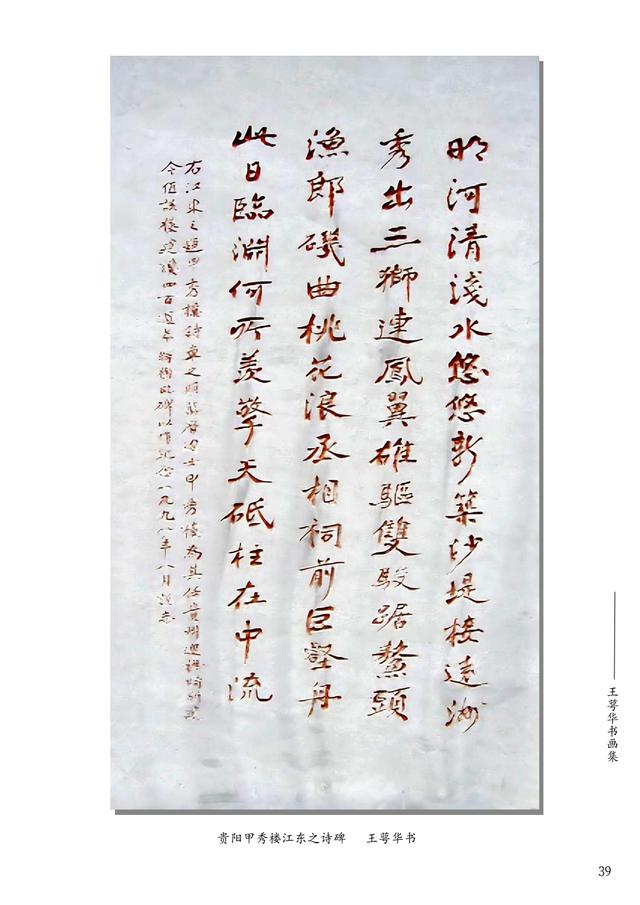 明河清淺水悠悠新築沙堤接遠洲
秀出三獅連鳳翼雄驅雙駿踞鰲頭
漁郎磯曲桃花浪丞相祠前巨壑舟
此日臨淵何所羨擎天砥柱在中流
右江東之題甲秀樓詩章之甲秀樓為其任貴州巡撫時所建
今值該樓建四百週年此碑以紀念一九九八年八月
王萼华书画集
贵阳甲秀楼江东之诗碑 王萼华书
39